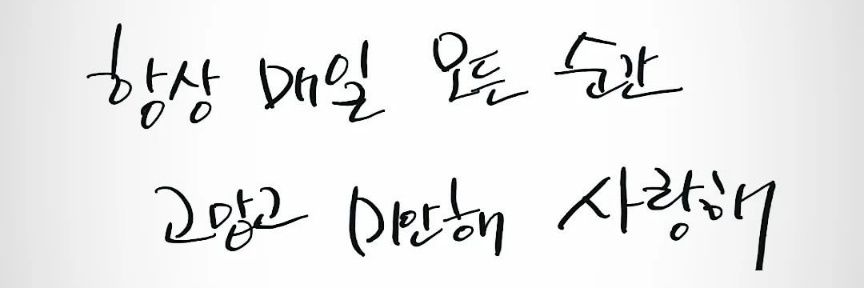 항상 매일 모든 순간
고맙고 미안해 사랑해